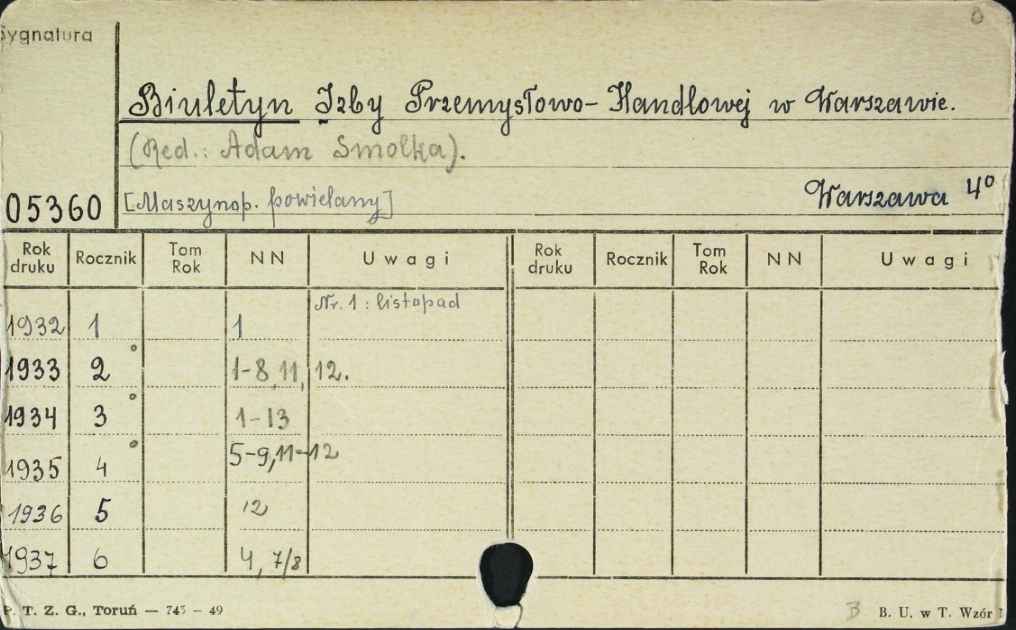 Sygnatura
Biuletyn Izby Przemysłowo-Handlowej w Warszawie.
(Red.: Adam Smolka).
05360 [Maszynop. powielany] Warszawa 4°
Rok druku Rocznik Tom Rok NN Uwagi Rok druku Rocznik Tom Rok NN Uwagi
Nr. 1 : listopad
1932 1 1
1933 2 1-8, 11, 12.
1934 3 1-13
1935 4 5-9, 11-12
1936 5 12
1937 6 4, 7/8
P. T. Z. G., Toruń — 745 — 49 B B. U. w T. Wzór